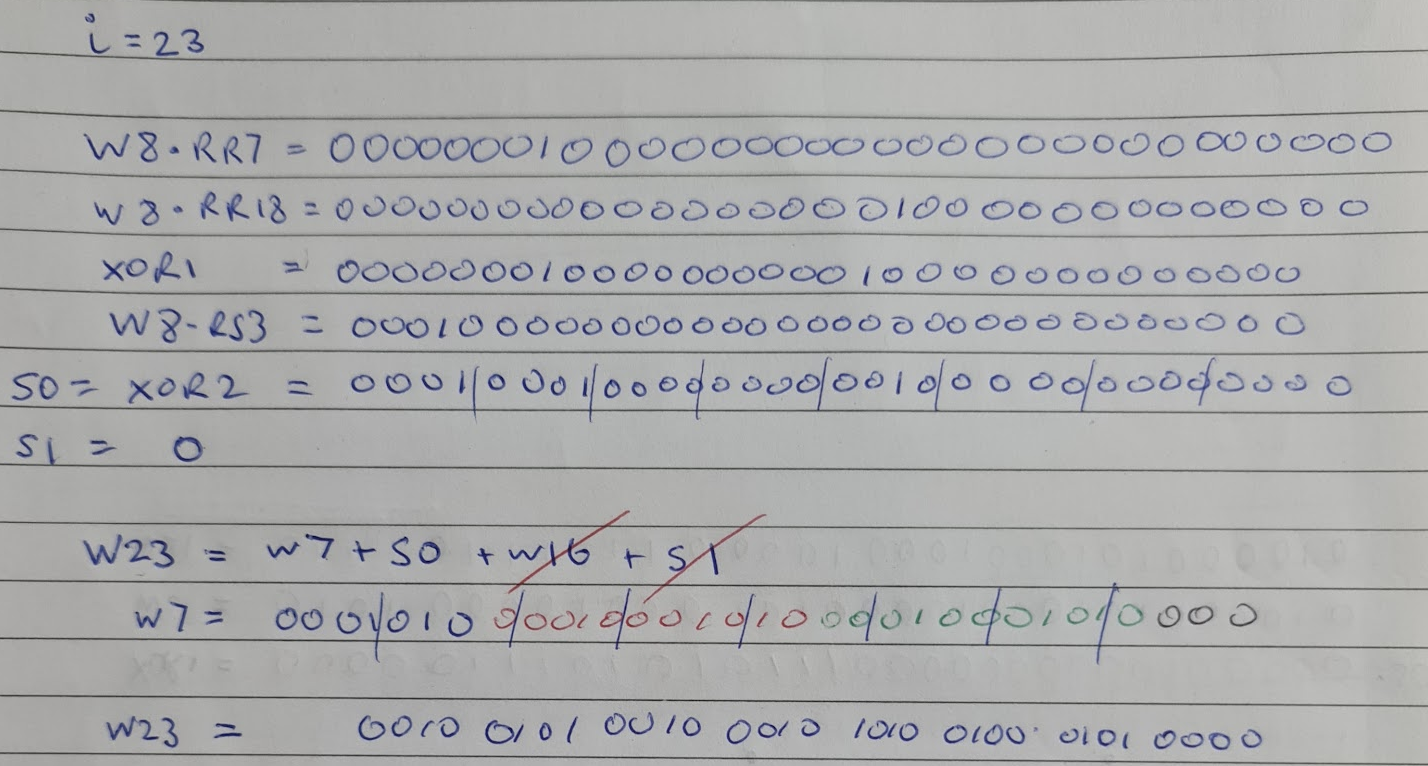 i = 23
W8.RR7 = 00000001000000000000000000000000
W8.RR18 = 00000000000000000010000000000000
XOR1 = 00000001000000000010000000000000
W8-RS3 = 00010000000000000000000000000000
S0 = XOR2 = 0001/0001/0000/0000/0010/0000/0000/0000
S1 = 0
W23 = W7 + S0 + W16 + S1
W7 = 0001/0100/0010/0010/1000/0100/0101/0000
W23 = 0010 0101 0010 0010 1010 0100 0101 0000